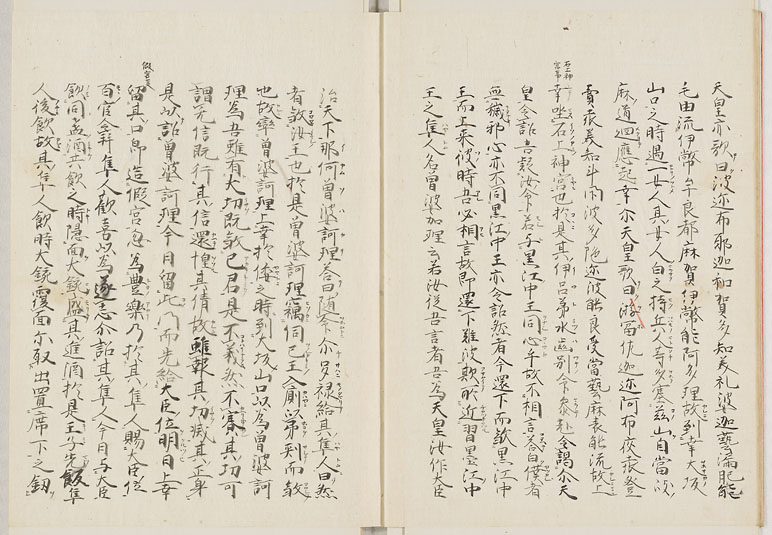 天皇亦歌曰波迩布邪迦和賀多知美礼婆迦藝漏肥能
毛由流伊幣牟良都麻賀伊幣能阿多理故到幸大坂
山口之時遇一女人其女人白之持兵人等多塞茲山自當岐
麻道迴應越幸尓天皇歌曰游富佐迦迩阿布夜袁登
賣袁美知斗閇波多陁迩波能良受當藝麻袁能流故上
石上神宮
幸坐石上神宮也於是其伊呂弟水歯別命参赴令謁尓天
皇令詔吾疑汝命若与黒江中王同心乎故不相言答白僕者
無穢邪心亦不同黒江中王亦令詔然者今還下而殺黒江中
王而上来彼時吾必相言故即還下難波欺所近習墨江中
王之隼人名曽婆加理云若汝従吾言者吾為天皇汝作大臣
治天下那何曽婆訶理答曰随命尓多禄給其隼人曰然
者殺汝王也於是曽婆訶理竊伺己王入厠以矛刺而殺
也故率曽婆訶理上幸於倭之時到大坂山口以為曽婆訶
理為吾雖有大功既殺己君是不義然不賽其功可
謂无信既行其信還惶其情故雖報其功滅其正身
是以詔曽婆訶理今日留此乃而先給大臣位明日上幸
假宮
留其口即造假宮忽為豊樂乃於其隼人賜大臣位
百官令拜隼人歓喜以為遂志尓詔其隼人今日与大臣
飲同盃酒共飲之時隠面大鋺盛其進酒於是王子先飯隼
人後飲故其隼人飲時大鋺覆面尓取出置席下之釼